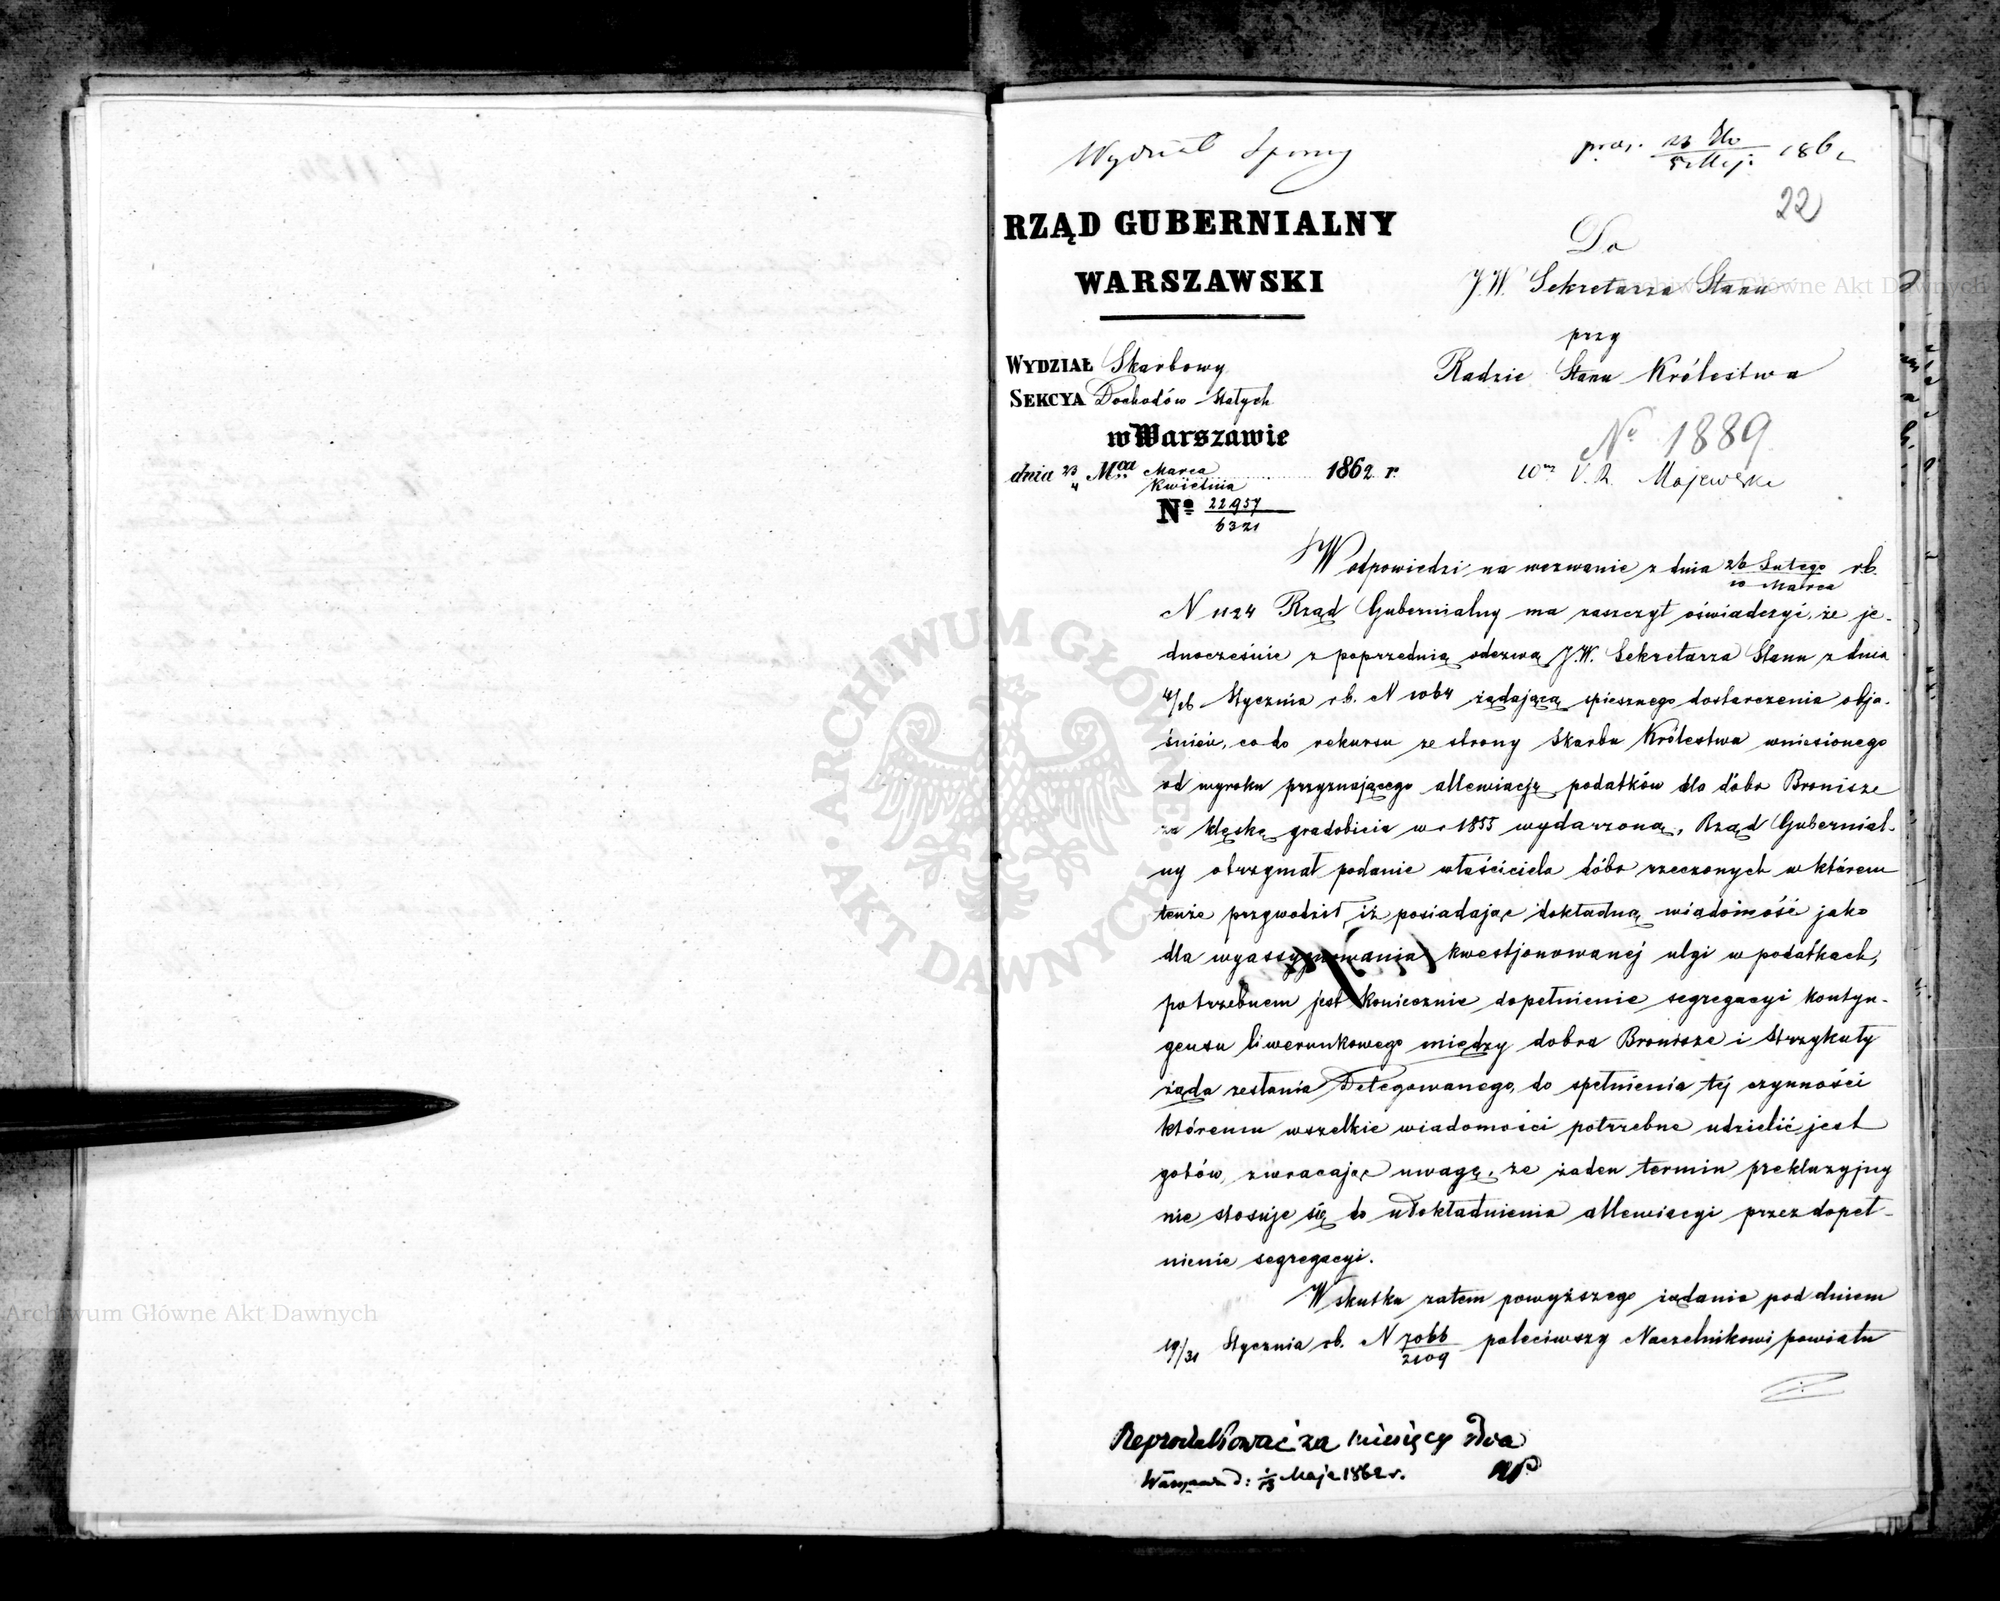 Wydział Sporny
22
RZĄD GUBERNIALNY
WARSZAWSKI
Do
J.W. Sekretarza Stanu
przy
Radzie Stanu Królestwa
WYDZIAŁ Skarbowy
SEKCYA Dochodów Stałych
w Warszawie
dnia 23/4 Mca Marca/Kwietnia 1862 r.
No 22957/6321
No 1889
V. R. Majewski
W odpowiedzi na wezwanie z dnia 26 Lutego/10 Marca rb.
N 1124 Rząd Gubernialny ma zaszczyt oświadczyć, że je-
dnocześnie z poprzednią odezwą J.W. Sekretarza Stanu z dnia
4/16 Stycznia rb. N 1064 żądającą spiesznego dostarczenia obja-
śnień, co do rekursu ze strony Skarbu Królestwa wniesionego
od wyroku przyznającego allewiację podatków dla dóbr Bronisze
za klęskę gradobicia w r 1855 wydarzoną, Rząd Gubernial-
ny otrzymał podanie właściciela dóbr rzeczonych w którem
tenże przywodził, iż posiadając dokładną wiadomość jako
dla wyassygnowania kwestjonowanej ulgi w podatkach,
potrzebnem jest koniecznie dopełnienie segregacyi kontyn-
gensu liwerunkowego między dobra Bronisze i Strzykuły
żąda zesłania Delegowanego, do spełnienia tej czynności
któremu wszelkie wiadomości potrzebne udzielić jest
gotów, zwracając uwagę, że żaden termin prekluzyjny
nie stosuje się do udokładnienia allewiacyi przez dopeł-
nienie segregacyi.
W skutku zatem powyższego żądania pod dniem
19/31 Stycznia rb. N 7066/2109 poleciwszy Naczelnikowi powiatu
Reprodukować za miesięcy dwa
1/13 Maja 1862 r.
ARCHIWUM GŁÓWNE AKT DAWNYCH
Archiwum Główne Akt Dawnych
Archiwum Główne Akt Dawnych